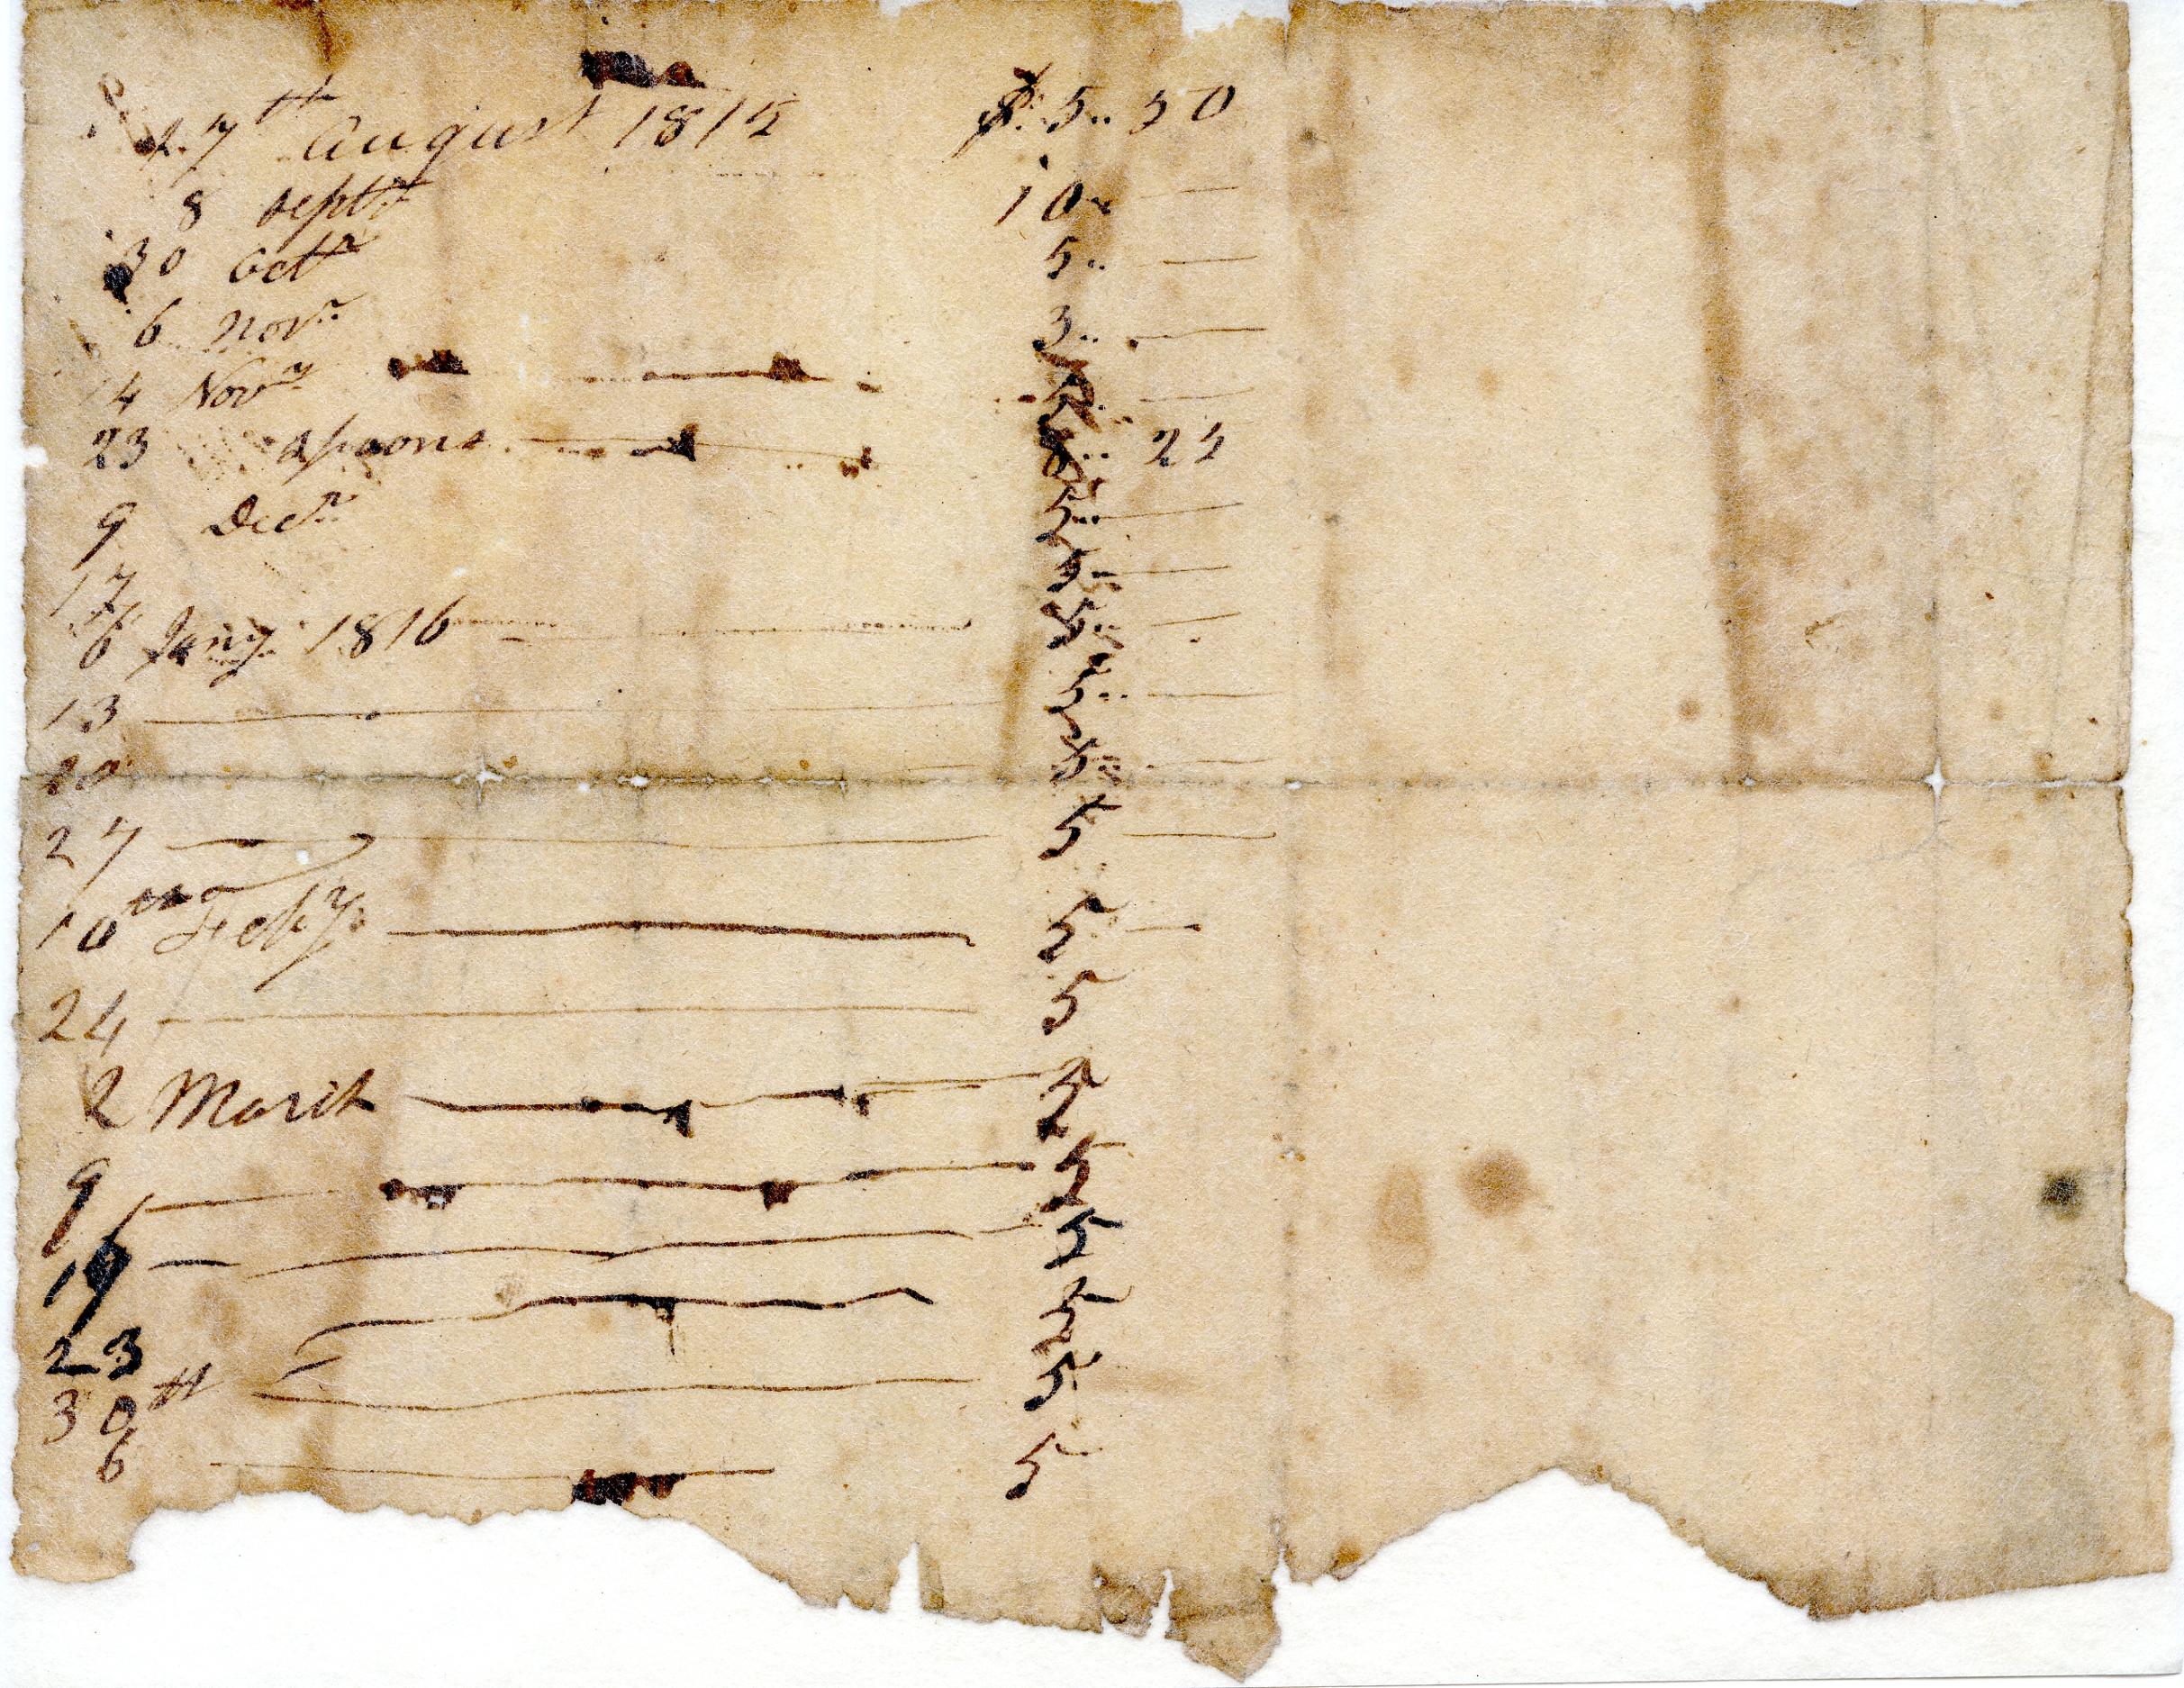 27th August 1815 $ 5.. 50
8 Septr 10.. —
30 Octr 5.. —
6 Novr 3.. —
14 Novr — 5.. —
23 Spoons — 8.. 25
9 Decr 5.. —
17 5.. —
6 Jany 1816 — 5.. —
13 — 5.. —
20 5.. —
27 — 5 —
10 Feby — 5 —
24 — 5
2 March — 5
9 — 5
— 5
23 — 5
30th — 5
6 — 5